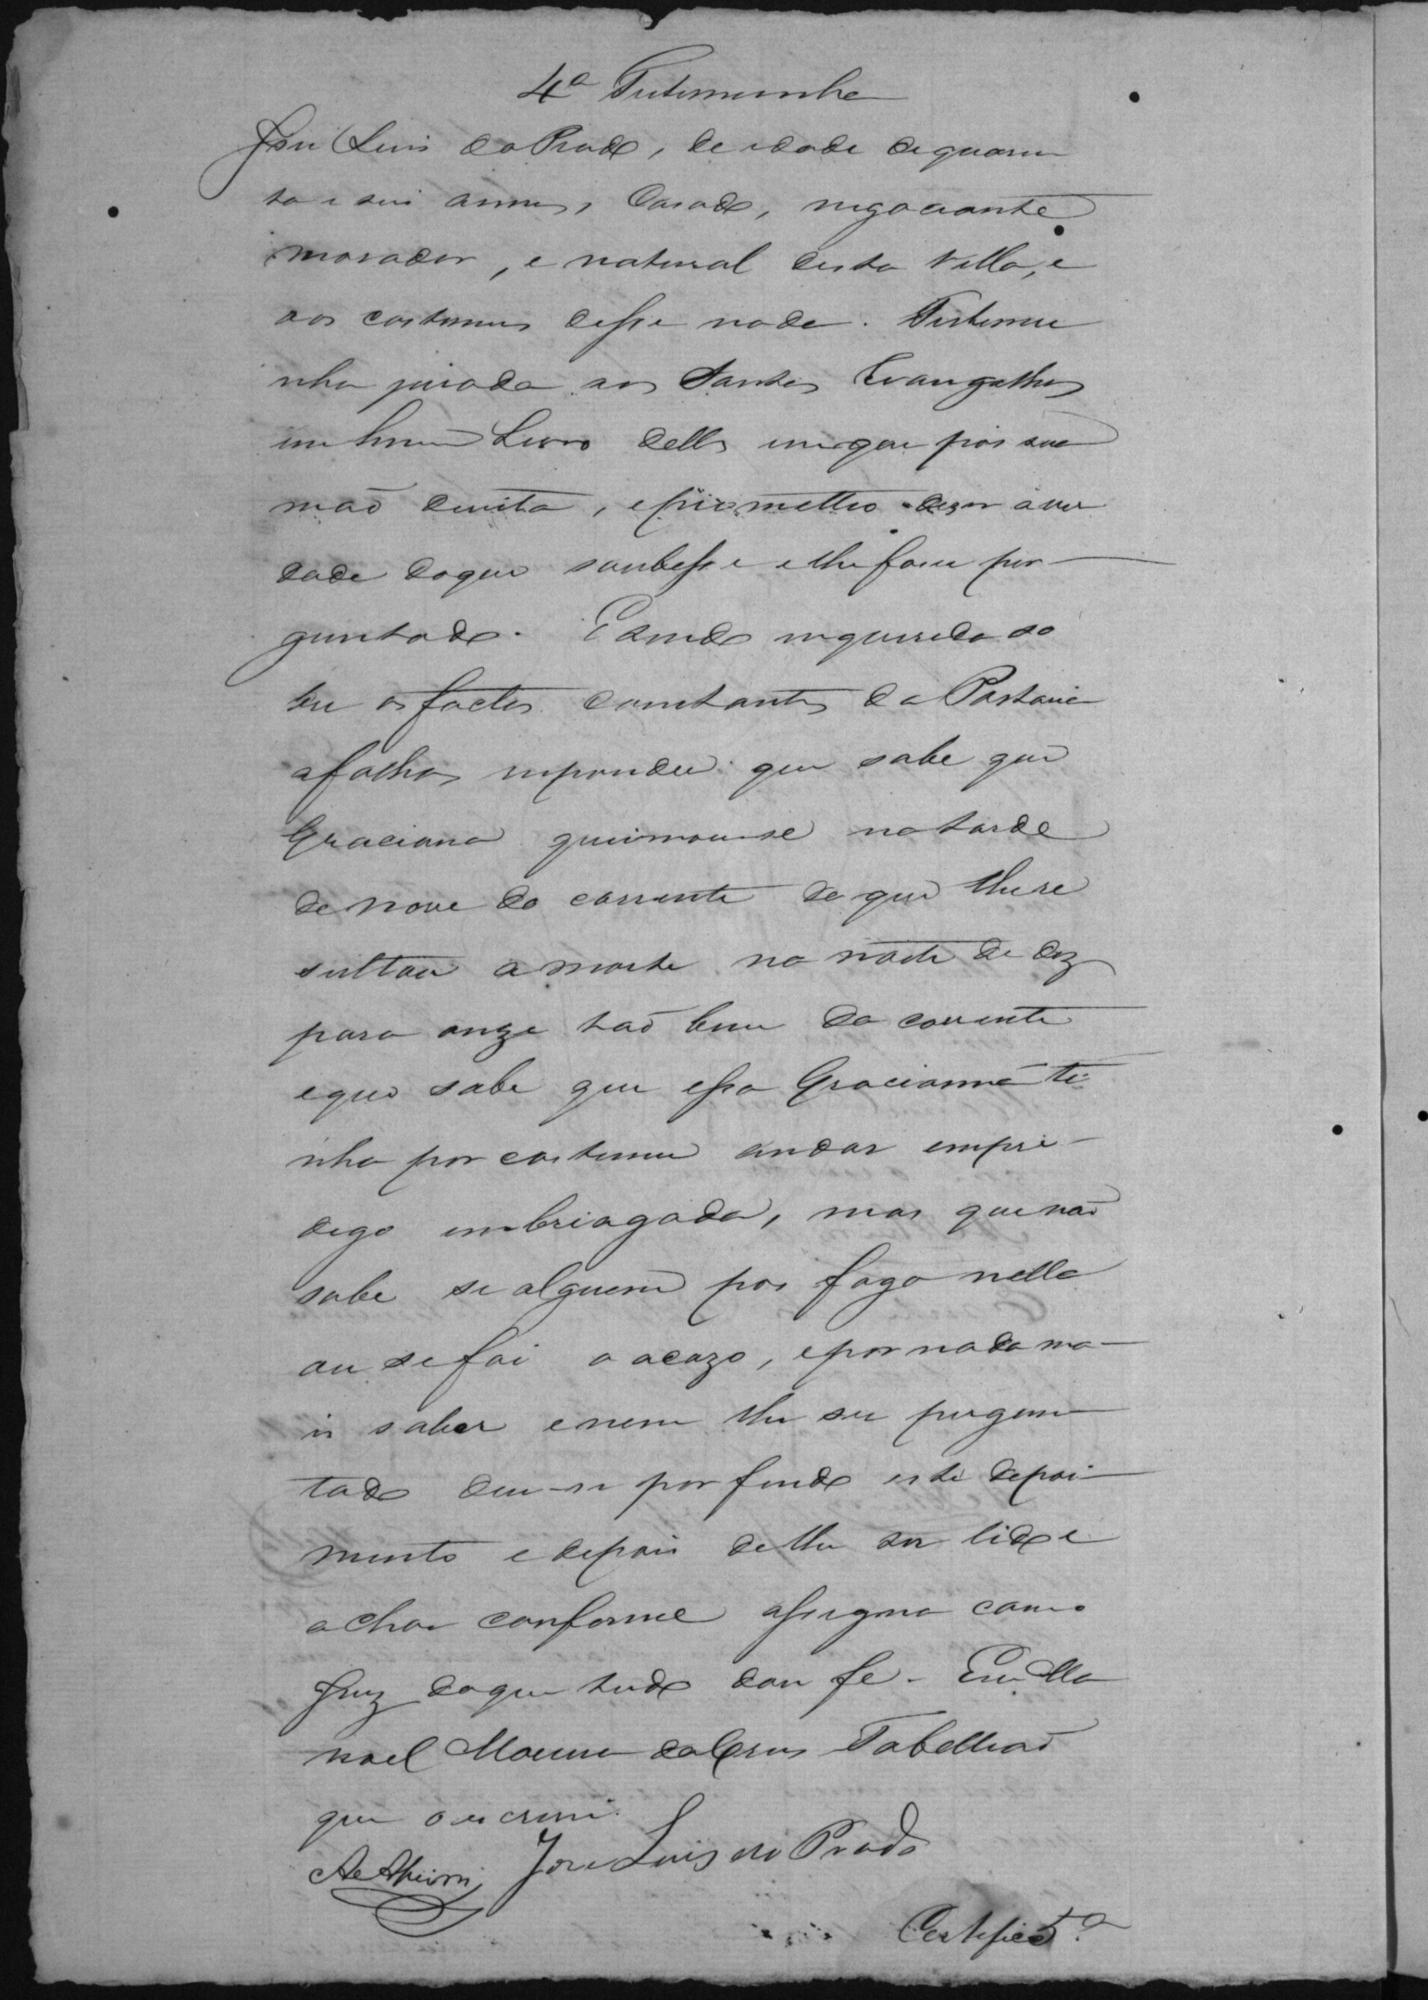 4ª Testemunha
José Luis do Prado, de idade de quaren
ta e seis annos, Casado, negociante
morador, e natural desta Villa, e
aos costumes desse nada. Testemu
nha jurada aos Santos Evangelhos
em hum Livro delles em que pôs sua
mão direita, e prometteo dizer a ver
dade do que soubesse e lhe fosse per
guntado. E sendo inquerida so
bre os factos constantes da Portaria
a folhas respondeu que sabe que
Graciana queimou-se na tarde
de nove do corrente do que lhe re
sultou a morte na noite de dez
para onze tão bem do corrente
e que sabe que essa Gracianna ti
nha por costume andar empre
digo embriagada, mas que não
sabe se alguem pos fogo nella
ou se foi o acazo, e por nada ma
is saber e nem lhe ser pergun
tado deu-se por findo este depoi
mento e depois de lhe ser lido e
achar conforme assigna com o
Juiz do que tudo dou fe. Eu Ma
noel Moreira da Crus Tabellião
que o escrevi.
José Luis do Prado
Certifico